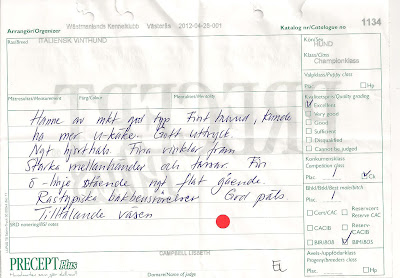 Arrangör/Organizer
Västmanlands Kennelklubb Västerås 2012-04-28-001
Katalog nr/Catalogue no
1134
Ras/Breed
ITALIENSK VINTHUND
Kön/Sex
HUND
Klass/Class
Championklass
Valpklass/Puppy class
Plac.
Hp
Färg/Colour
Kvalitetspris/Quality grading
Excellent
Very good
Good
Sufficient
Disqualified
Cannot be judged
Hanne av mkt god typ Fint huvud, kunde
ha mer u-käke. Gott uttryck.
Ngt hjorthals. Fina vinklar fram
Starka mellanhänder och tassar. Fin
ö-linje stående ngt flat gående.
Rastypiska bakbensrörelser God päls
Tilltalande väsen
Konkurrensklass
Competition class
Plac. 1
Ck
Plac. 1
Cert/CAC
Reservcert
Reserve CAC
CACIB
Reserv-
CACIB
BIM/BOS
CAMPBELL LISSETH
PRECEPT Plus
Domare/Name of judge
EL
Avels-/uppfödarklass
Progeny/breeders class
Plac.
Hp